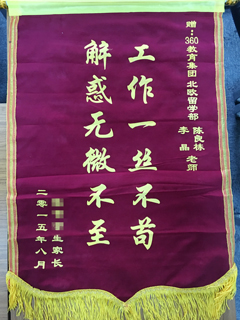 赠：360教育集团 北欧留学部
陈良栋
李晶 老师
工作一丝不苟
解惑无微不至
生家长
二零一五年八月